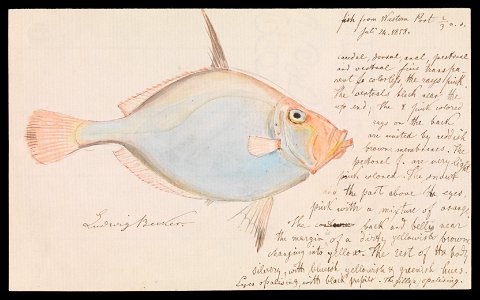 fish from Western Port 2/3 n. s.
Juli 24. 1858.
caudal, dorsal, anal, pectoral
and ventral fins transpa
rent & colorless, the rays pink.
The ventrals black near the
up end. The 8 pink colored
rays on the back
are united by reddish
brown membranes. The
pectoral f. are very light
pink colored. The snout
and the part above the eyes
pink with a mixture of orange.
The back and belly near
the margin of a dirty yellowish brown
changing into yellow. The rest of the body
silvery, with bluish yellowish & greenish hues.
Eyes opalising with black pupil. The fillp. opalising.
Ludwig Becker.